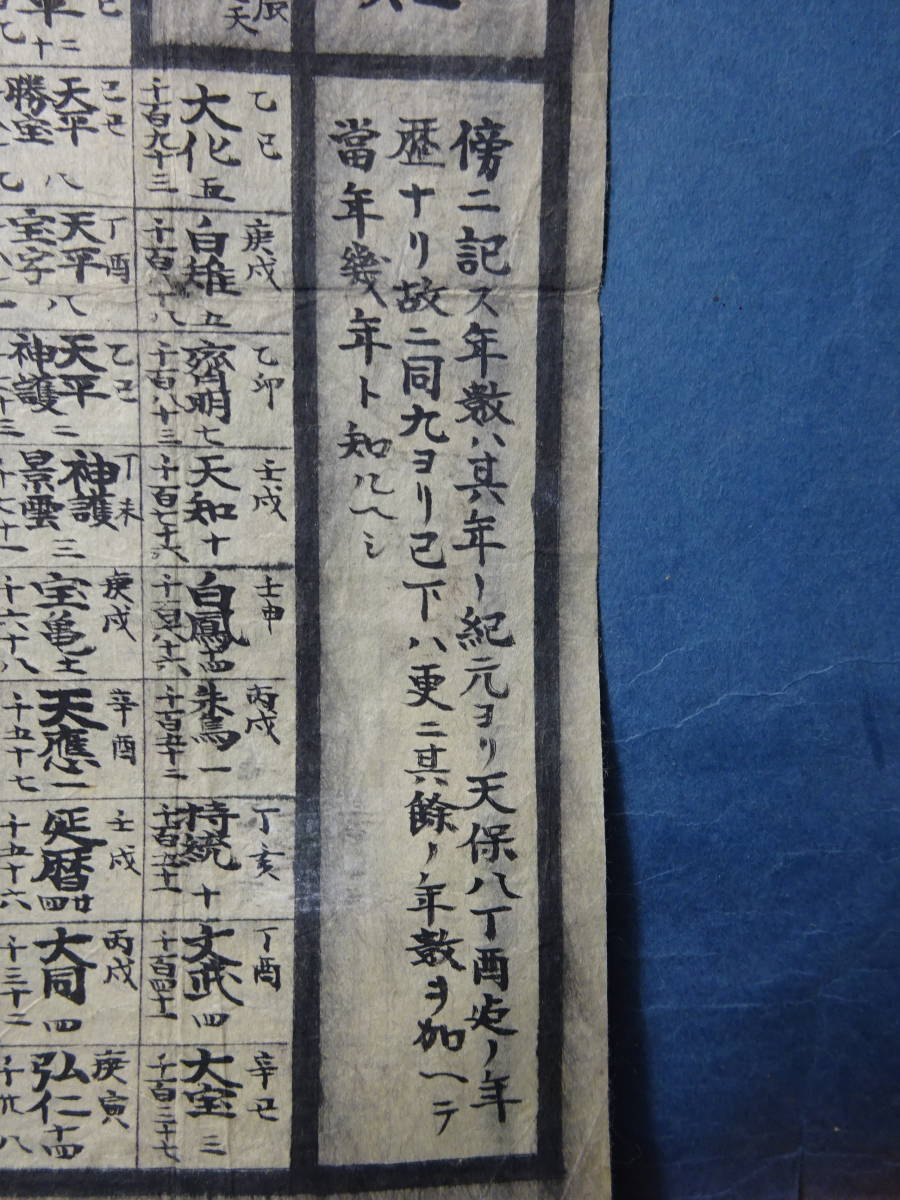 傍ニ記ス年数ハ其年ノ紀元ヨリ天保八丁酉迠ノ年
歴ナリ故ニ同九ヨリ已下ハ更ニ其餘ノ年数ヲ加ヘテ
當年幾年ト知ルヘシ
乙巳
大化五
千百九十三
庚戌
白雉五
千百八十八
乙卯
齊明七
千百八十三
壬戌
天知十
千百七十六
壬申
白鳳十四
千百六十六
丙戌
朱鳥一
千百五十二
丁亥
持統十
千百五十一
丁酉
文武四
千百四十一
辛丑
大宝三
千百三十七
己丑
天平
勝宝八
丁酉
天平
宝字八
乙巳
天平
神護二
丁未
神護
景雲三
千七十一
庚戌
宝亀十一
千六十八
辛酉
天應一
千五十七
壬戌
延暦廿四
千五十六
丙戌
大同四
千三十二
庚寅
弘仁十四
千廿八